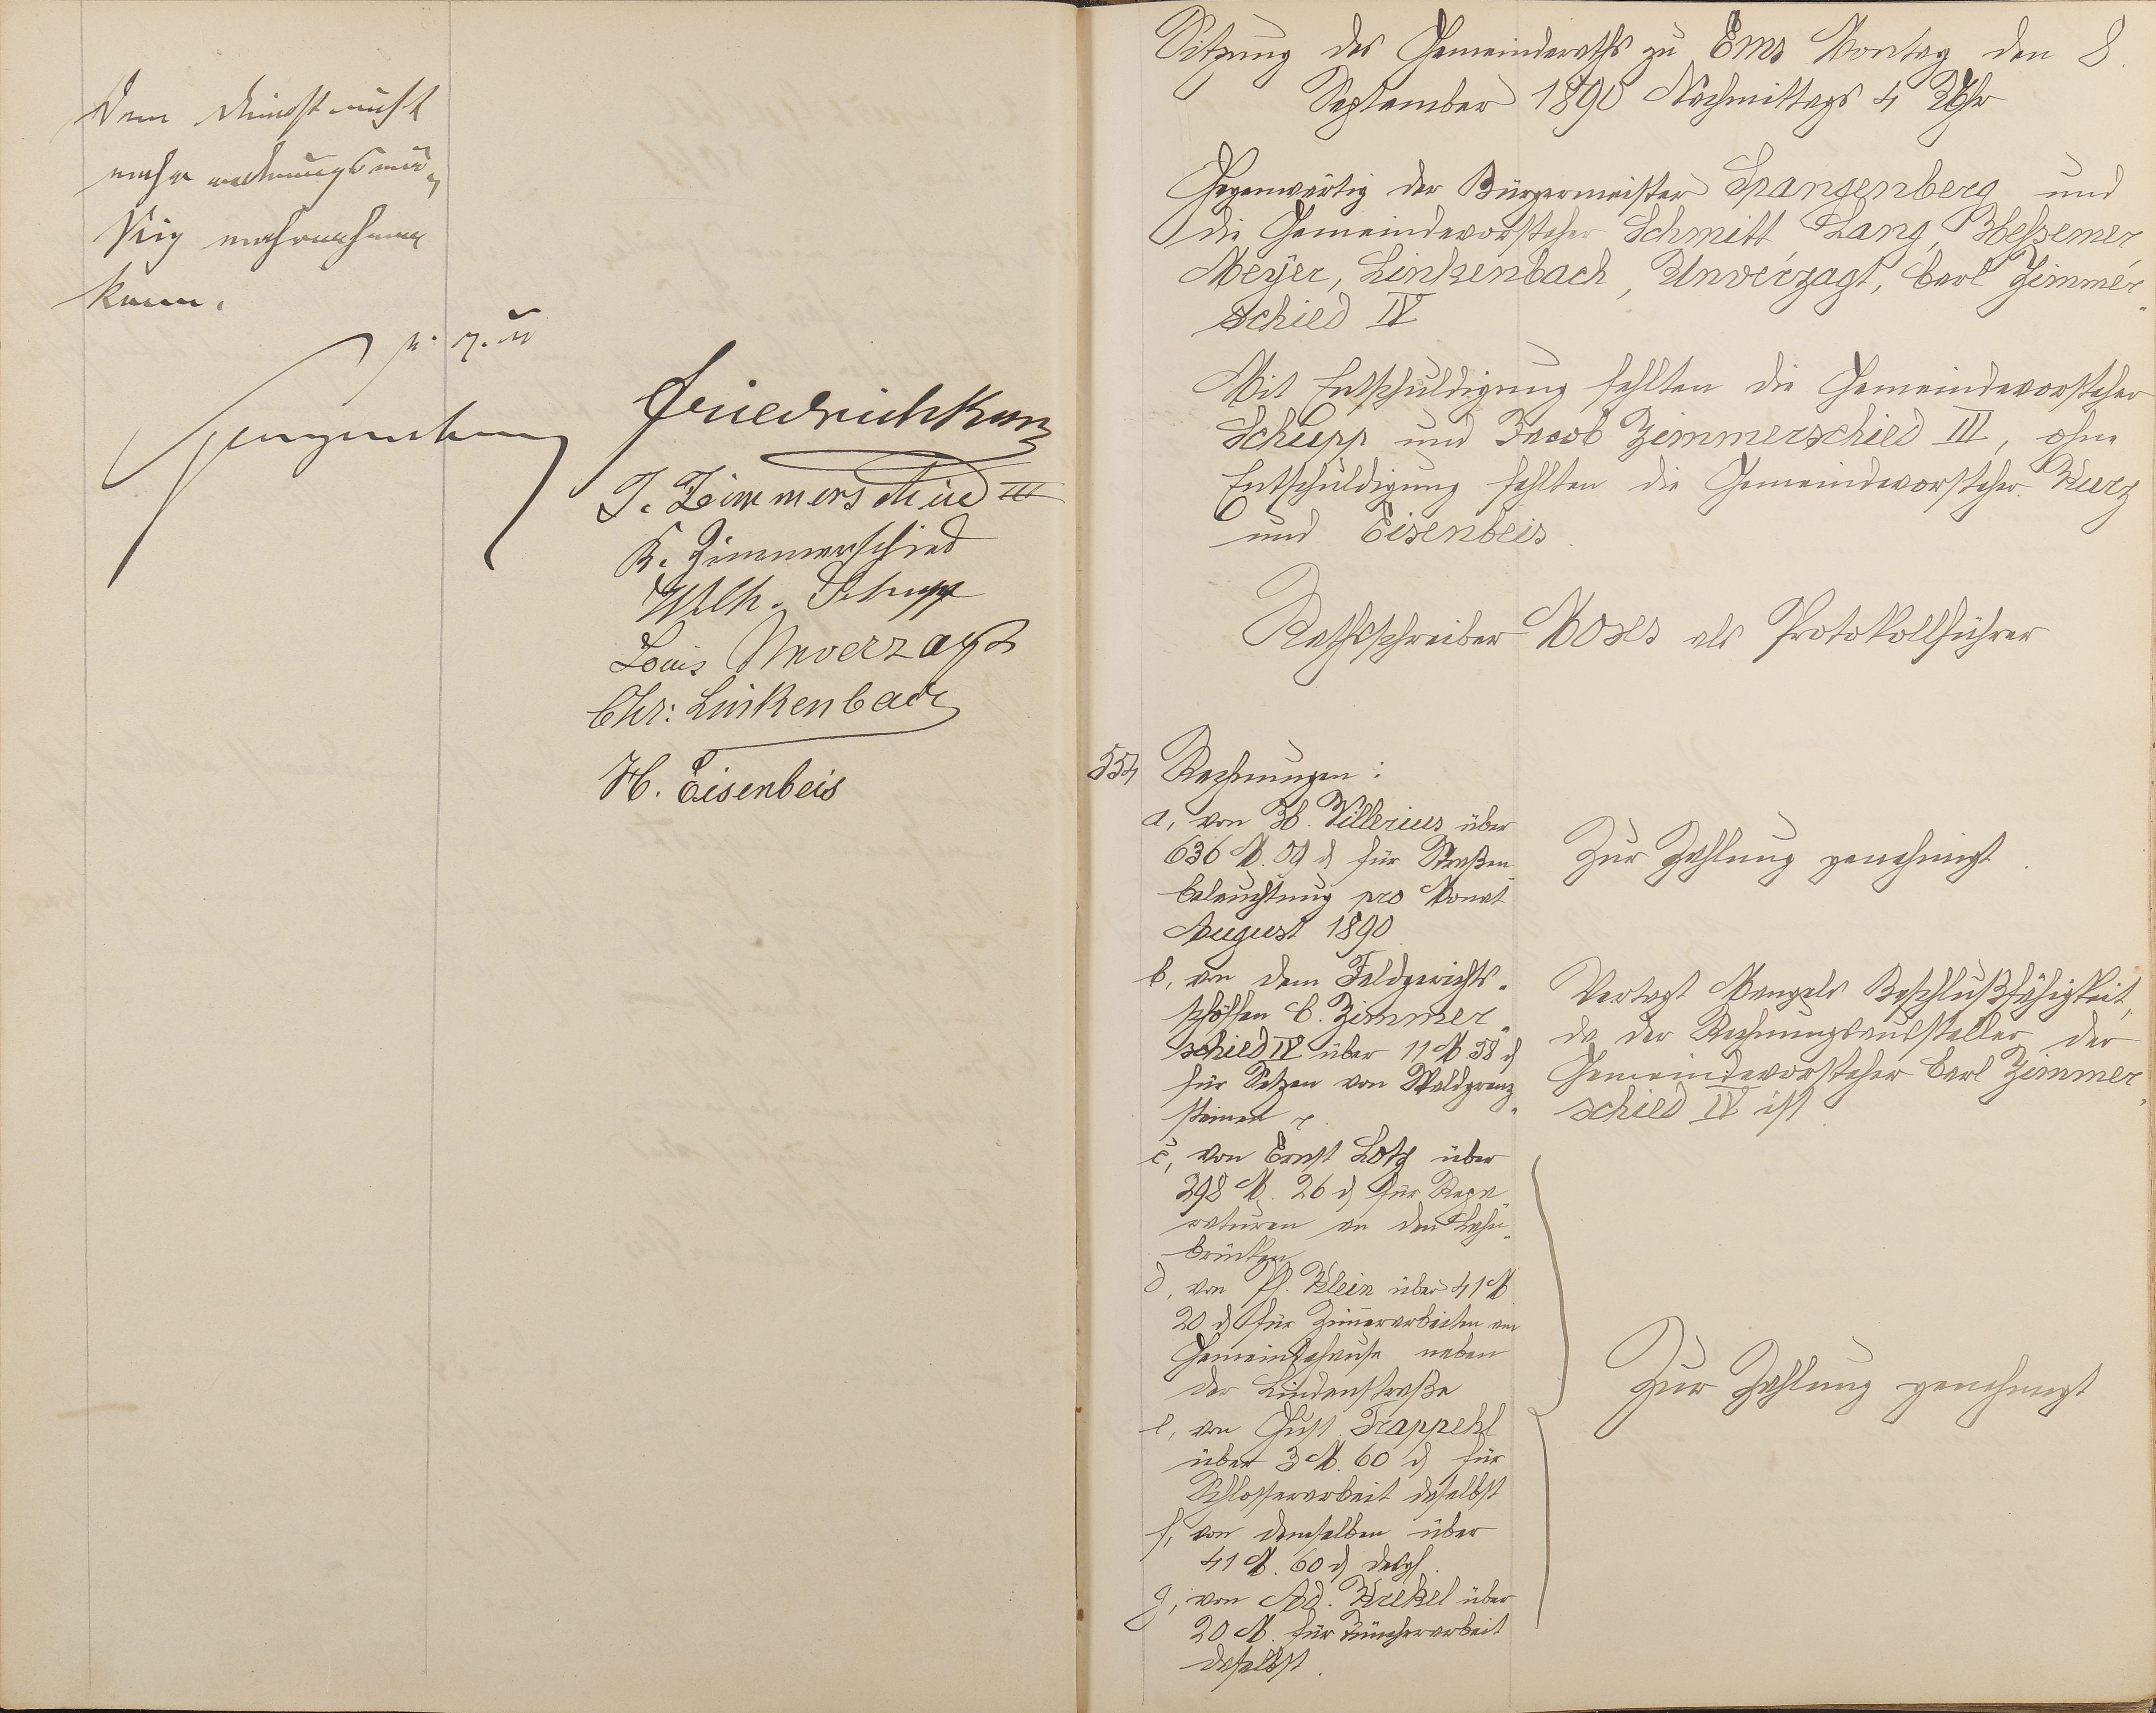 dem Dienst nicht
mehr ordnungsmä-
ßig wahrnehmen
kann.
v. g. u.
Spangenberg
Friedrich Kurz
J. Zimmerschied III
K. Zimmerschied
Wilh. Schupp
Louis Unverzagt
Chr: Linkenbach
H. Eisenbeis
Sitzung des Gemeinderaths zu Ems Montag den 8.
September 1890 Nachmittags 4 Uhr
Gegenwärtig der Bürgermeister Spangenberg und
die Gemeindevorsteher Schmitt Lang, Hessemer
Meyer, Linkenbach, Unverzagt, Carl Zimmer-
schied IV
Mit Entschuldigung fehlten die Gemeindevorsteher
Schupp und Jacob Zimmerschied III, ohne
Entschuldigung fehlten die Gemeindevorsteher Kurz
und Eisenbeis.
Rathsschreiber Moses als Protokollführer
554 Rechnungen:
a, von H. Villerius über
636 M. 09 d für Straßen-
beleuchtung pro Monat
August 1890
Zur Zahlung genehmigt.
b, von dem Feldgerichts-
schöffen C. Zimmer-
schied IV über 11 M 58 d
für Setzen von Waldgrenz-
steinen
Vertagt Mangels Beschlußfähigkeit,
da der Rechnungsaussteller der
Gemeindevorsteher Carl Zimmer-
schied IV ist.
c, von Ernst Lotz über
398 M. 26 d für Repa-
raturen an den Lahn-
brücken
d, von Ph. Klein über 41 M
20 d für Zimmerarbeiten am
Gemeindehause neben
der Lindenstraße
e, von Gust. Trappehl
über 3 M. 60 d für
Schlosserarbeit daselbst
f, von demselben über
41 M. 60 d desgl.
g, von Ad. Krekel über
20 M. für Tüncherarbeit
daselbst.
Zur Zahlung genehmigt